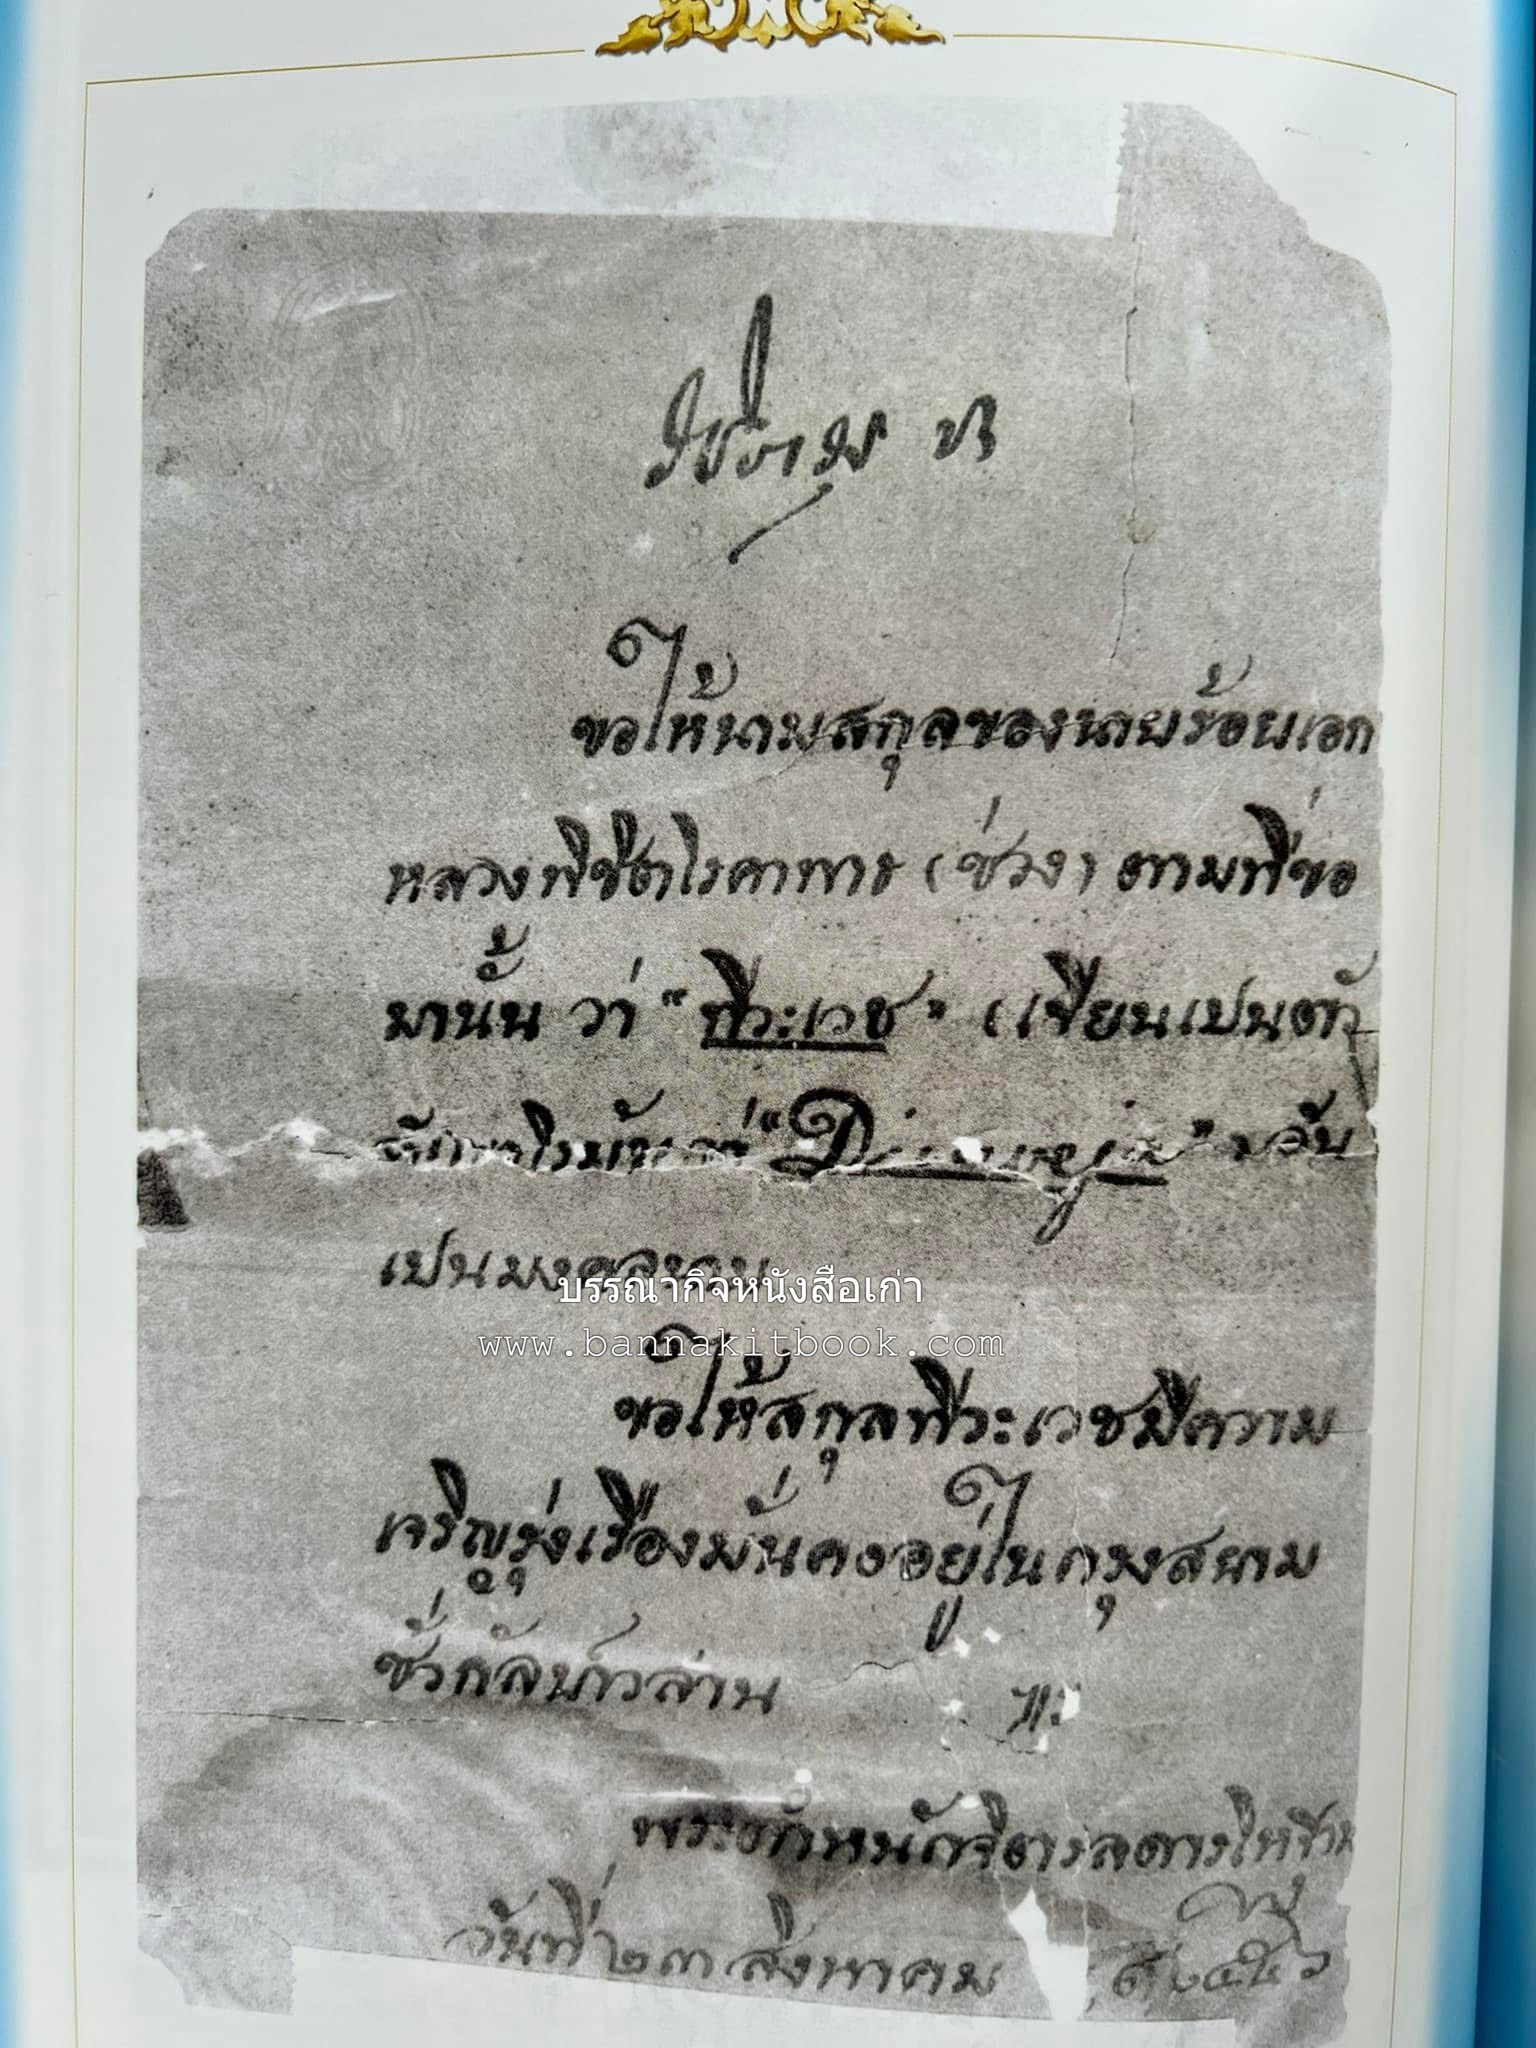 ขอให้นามสกุลของนายร้อยเอก
หลวงพิชิตโรคาพาธ (ช่วง) ตามที่ขอ
มานั้น ว่า "ถีระเวช" (เขียนเปนตัว
อันเปน
เปนมงคลนาม
บรรณากิจหนังสือเก่า
www.bannakitbook.com
ขอให้สกุลถีระเวชมีความ
เจริญรุ่งเรืองมั่นคงอยู่ในกรุงสยาม
ชั่วกัลปาวสาน
พระตำหนักจิตรลดารโหฐาน
วันที่ ๒๓ สิงหาคม